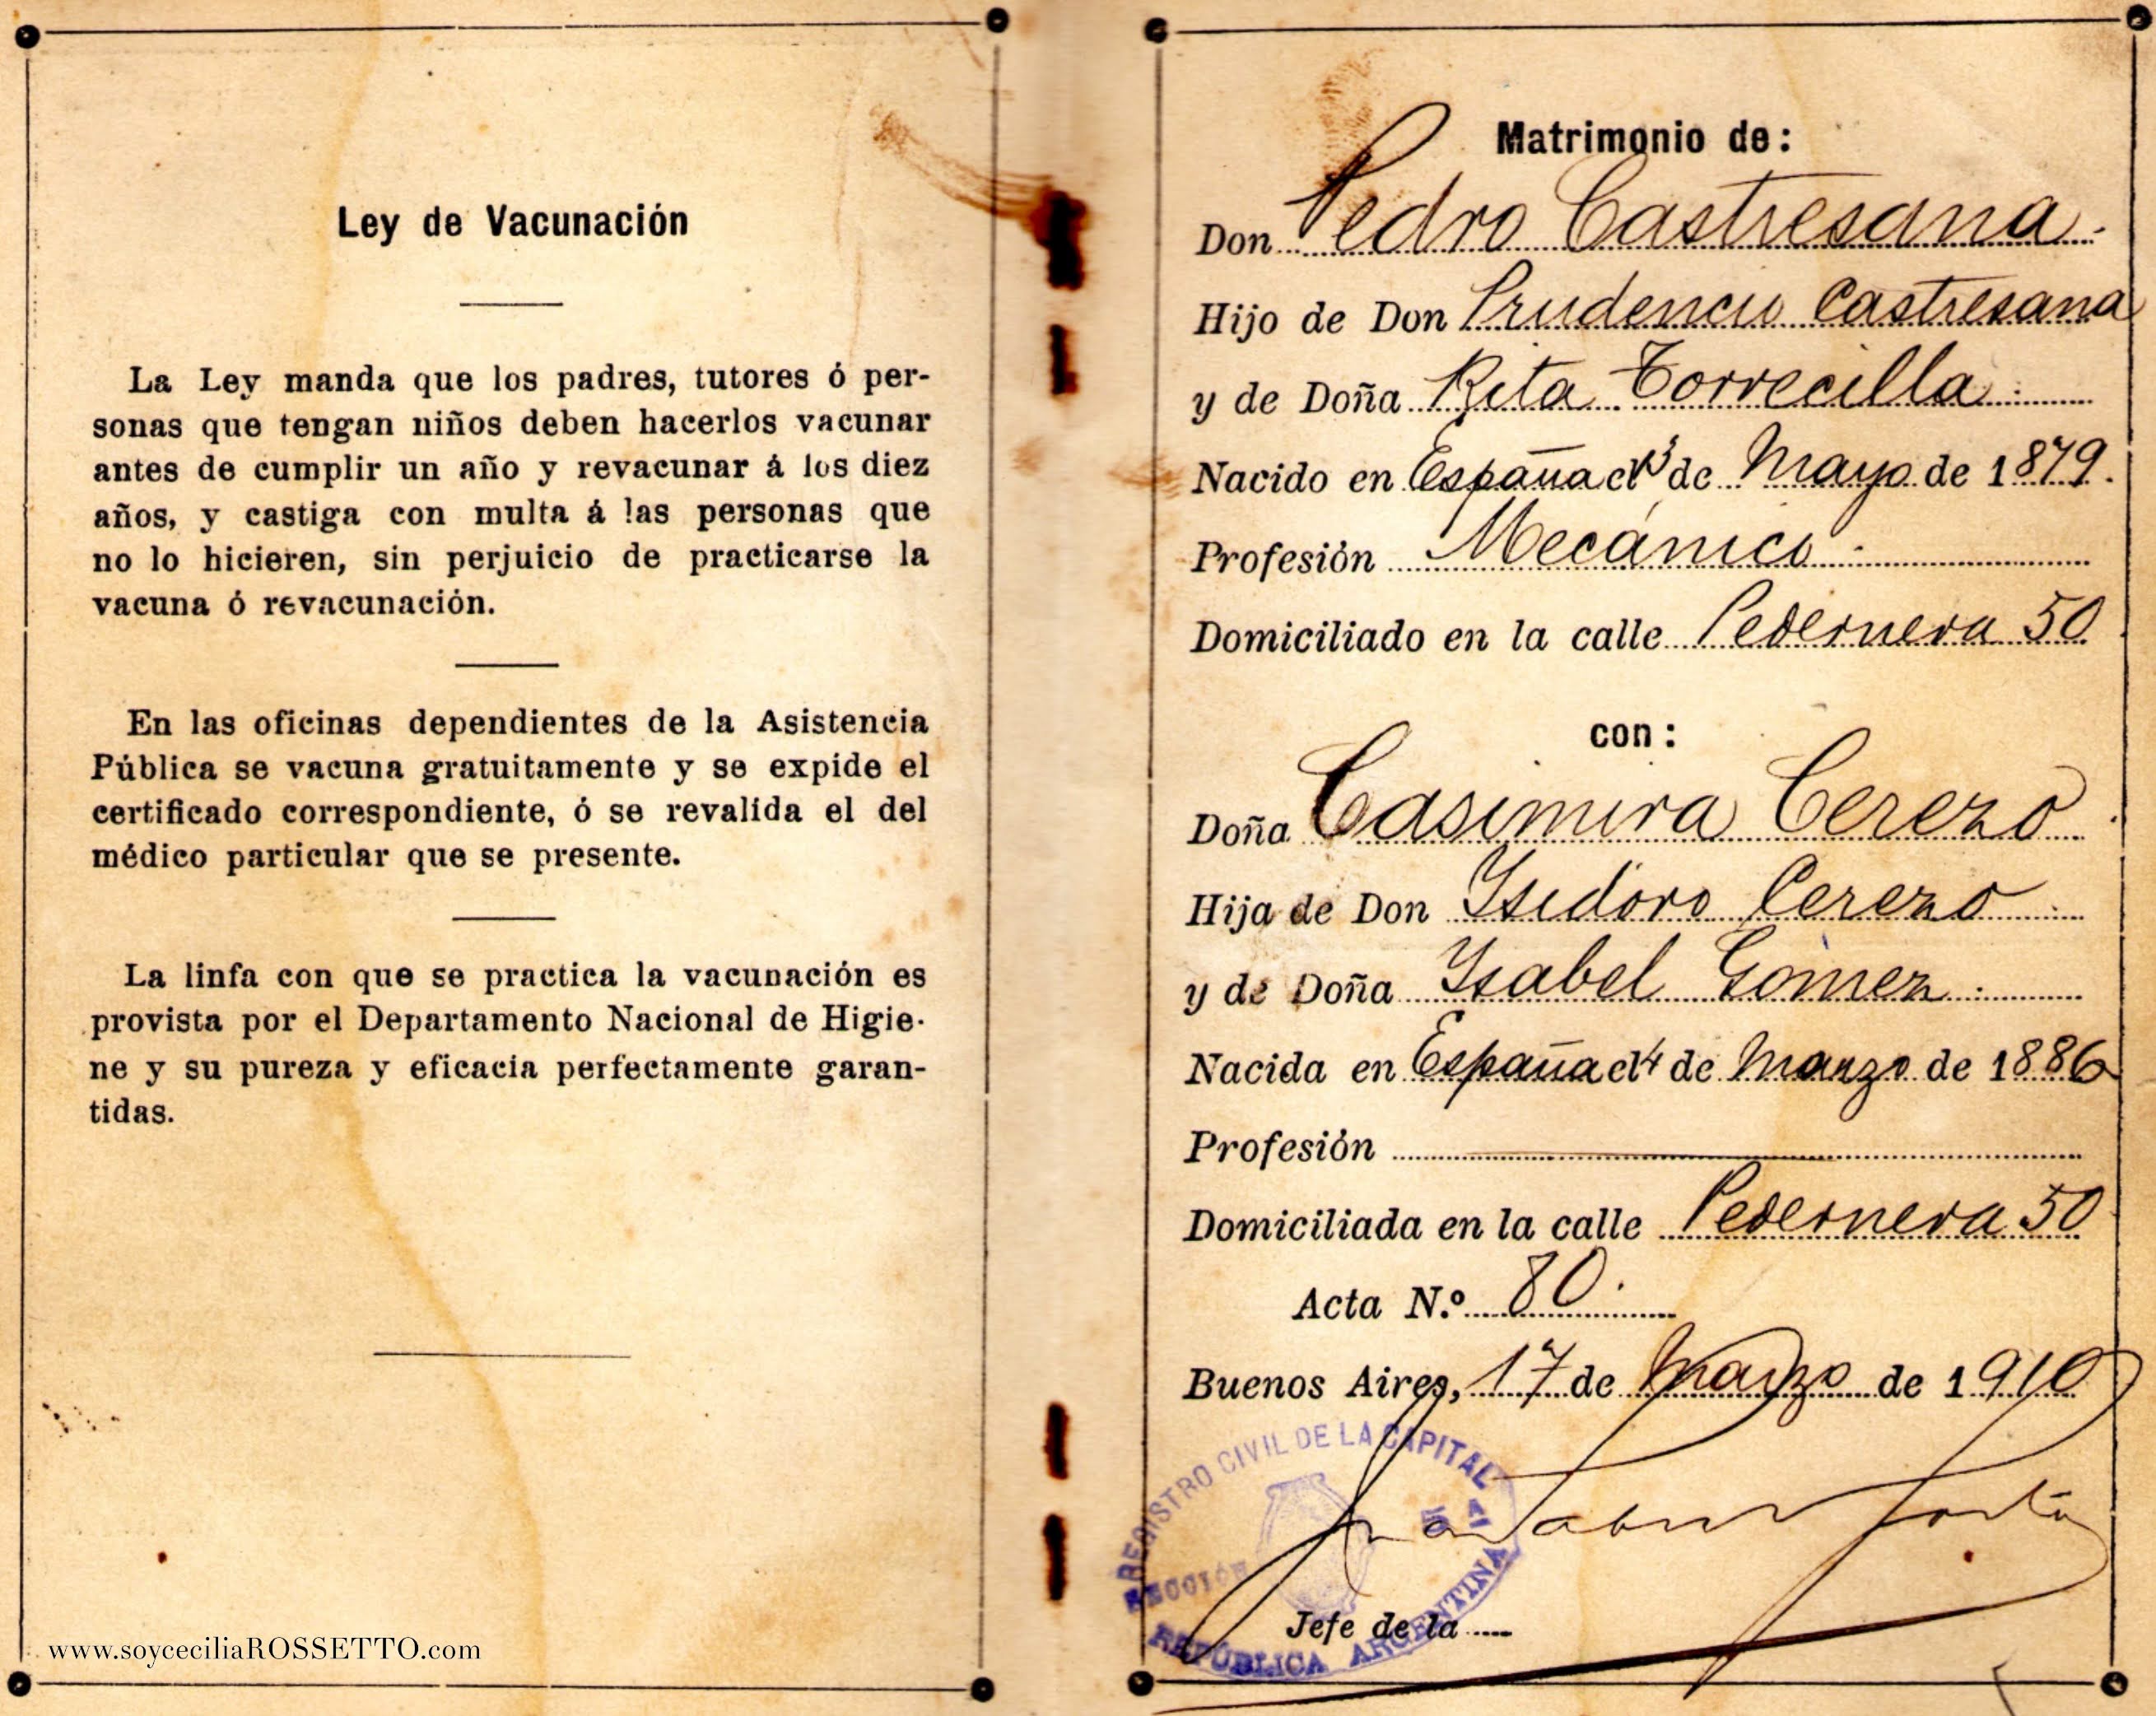 Ley de Vacunación
La Ley manda que los padres, tutores ó per-
sonas que tengan niños deben hacerlos vacunar
antes de cumplir un año y revacunar á los diez
años, y castiga con multa á las personas que
no lo hicieren, sin perjuicio de practicarse la
vacuna ó revacunación.
En las oficinas dependientes de la Asistencia
Pública se vacuna gratuitamente y se expide el
certificado correspondiente, ó se revalida el del
médico particular que se presente.
La linfa con que se practica la vacunación es
provista por el Departamento Nacional de Higie-
ne y su pureza y eficacia perfectamente garan-
tidas.
www.soyceciliaROSSETTO.com
Matrimonio de:
Don Pedro Castresana
Hijo de Don Prudencio Castresana
y de Doña Rita Torrecilla
Nacido en España el de Mayo de 1879.
Profesión Mecánico
Domiciliado en la calle Pedernera 50
con:
Doña Casimira Cerezo
Hija de Don Isidoro Cerezo
y de Doña Isabel Gómez
Nacida en España el 4 de Marzo de 1886
Profesión
Domiciliada en la calle Pedernera 50
Acta N.º 80.
Buenos Aires, 17 de Marzo de 1910
REGISTRO CIVIL DE LA CAPITAL
SECCIÓN
REPÚBLICA ARGENTINA
Jefe de la